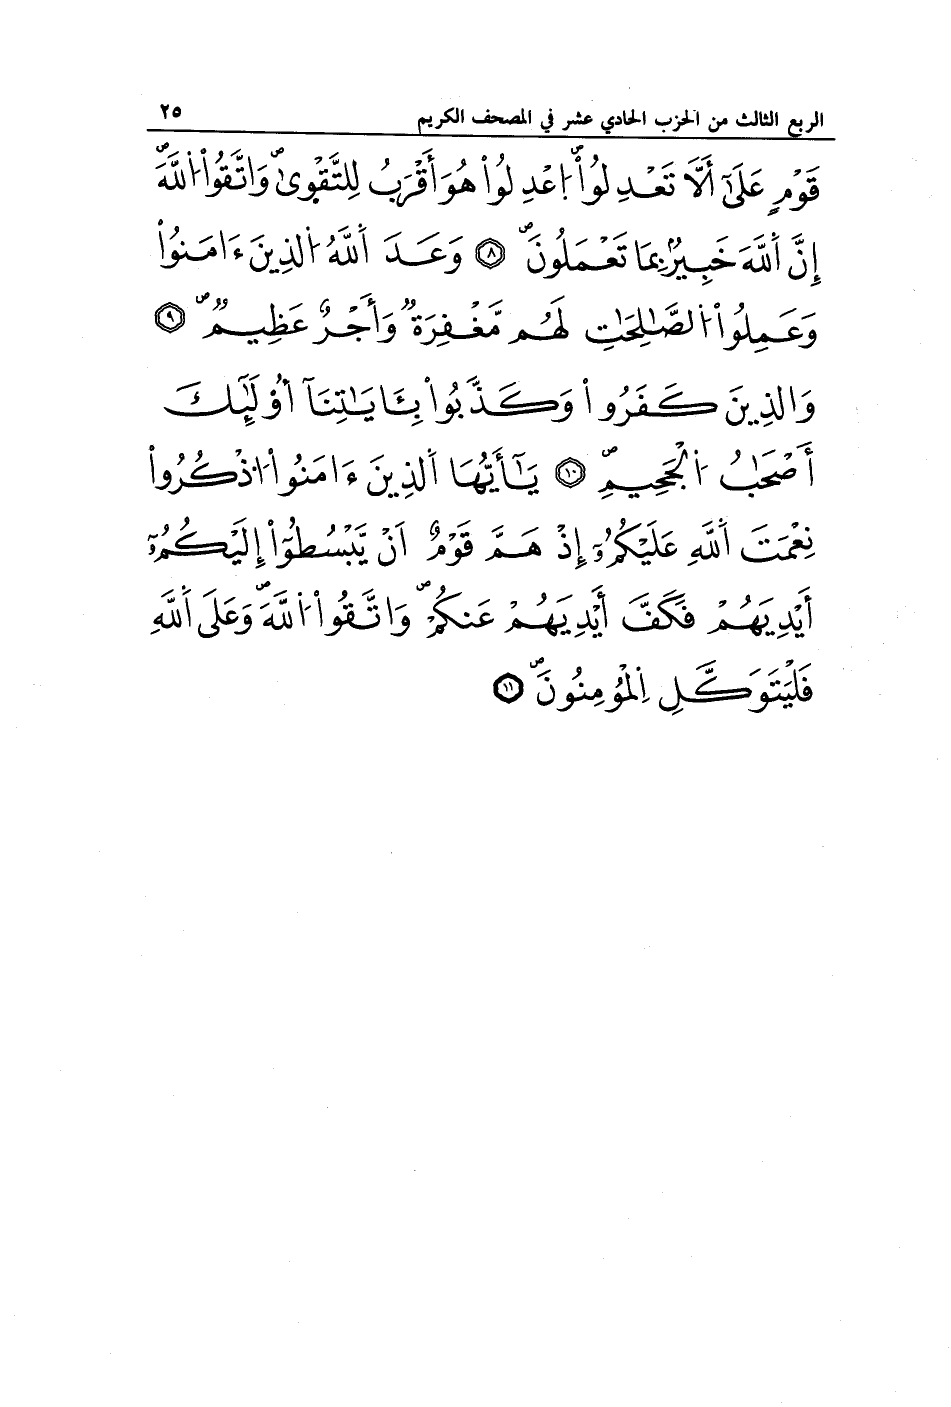 الربع الثالث من الحزب الحادي عشر في المصحف الكريم ٢٥
قَوْمٍ عَلَىٰٓ أَلَّا تَعْدِلُواْۖ اِ۪عْدِلُواْ هُوَ أَقْرَبُ لِلتَّقْو۪ىٰۖ وَاتَّقُواْ اُ۬للَّهَۖ
إِنَّ اَ۬للَّهَ خَبِيرُۢ بِمَا تَعْمَلُونَۖ ٨ وَعَدَ اَ۬للَّهُ اُ۬لذِينَ ءَامَنُواْ
وَعَمِلُواْ اُ۬لصَّٰلِحَٰتِ لَهُم مَّغْفِرَةٞ وَأَجْرٌ عَظِيمٞۖ ٩
وَالذِينَ كَفَرُواْ وَكَذَّبُواْ بِـَٔايَٰتِنَآ أُوْلَٰٓئِكَ
أَصْحَٰبُ اُ۬لْجَحِيمِۖ ١٠ يَٰٓأَيُّهَا اَ۬لذِينَ ءَامَنُواْ اُ۟ذْكُرُواْ
نِعْمَتَ اَ۬للَّهِ عَلَيْكُمُۥٓ إِذْ هَمَّ قَوْمٌ اَنْ يَّبْسُطُوٓاْ إِلَيْكُمُۥٓ
أَيْدِيَهُمْ فَكَفَّ أَيْدِيَهُمْ عَنكُمْۖ وَاتَّقُواْ اُ۬للَّهَۖ وَعَلَى اَ۬للَّهِ
فَلْيَتَوَكَّلِ اِ۬لْمُؤْمِنُونَۖ ١١